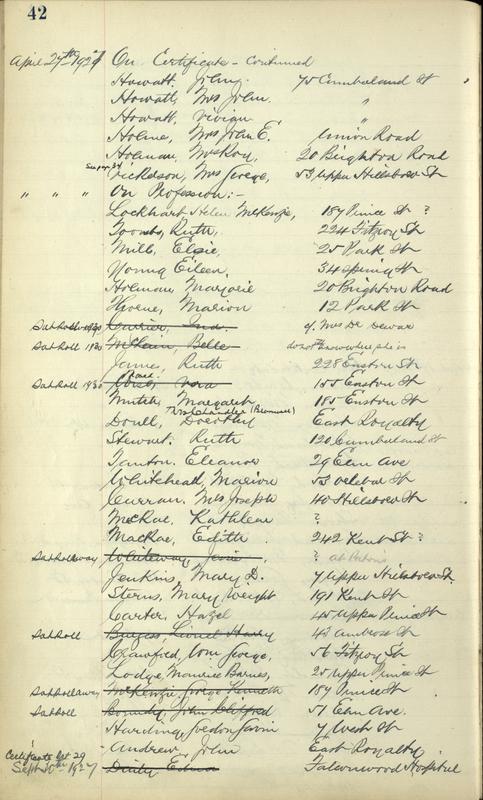 42
April 27th 1927 On Certificate - Continued
Howatt, John J. 75 Cumberland St
Howatt, Mrs John "
Howatt, Vivian "
Holme, Mrs John E. Union Road
Holman, McRoy, 20 Brighton Road
See page 34
Nickerson, Mrs George, 53 Upper Hillsboro St
" " " On Profession :-
Lockhart Helen McKenzie, 187 Prince St ?
Toombs, Ruth, 224 Fitzroy St
Mill, Elsie, 25 Park St
Young Eileen, 34 Spring St
Holman Marjorie 20 Brighton Road
Horne, Marion 12 Park St
Sab Roll 1930 Currier, Ina. c/o Mrs Dr Dewar
Sab Roll 1930 McLean, Belle do not know where she is
James, Ruth 228 Euston St
Sab Roll 1930 Vera 155 Euston St
Mutch, Margaret 185 Euston St
Mrs Chandler
Doull, Dorothy East Royalty
Stewart. Ruth 120 Cumberland St
Tanton. Eleanor 29 Elm Ave
Whitehead, Marion 53 St
Curran. Mrs Joseph 40 Hillsboro St
McRae, Kathleen ?
MacRae, Edith 242 Kent St ?
Sab Roll away Whiteway, Jessie ?
Jenkins, Mary D. 7 Upper Hillsboro St.
Sterns, Mary Wright 191 Kent St
Carter, Hazel 45 Upper Prince St
Sab Roll Burgess, Lionel Harry 43 Ambrose St
Crawford, Wm George, 56 Fitzroy St
Lodge, Maurice Barnes, 25 Upper Prince St
Sab Roll away McKenzie, George Kenneth 187 Prince St
Sab Roll Boundy, John Clifford 51 Elm Ave.
Harding, Gordon Gavin 7 West St
Andrew, John East Royalty
Certificate Oct 29
Sept 30th 1927 Edna Falconwood Hospital